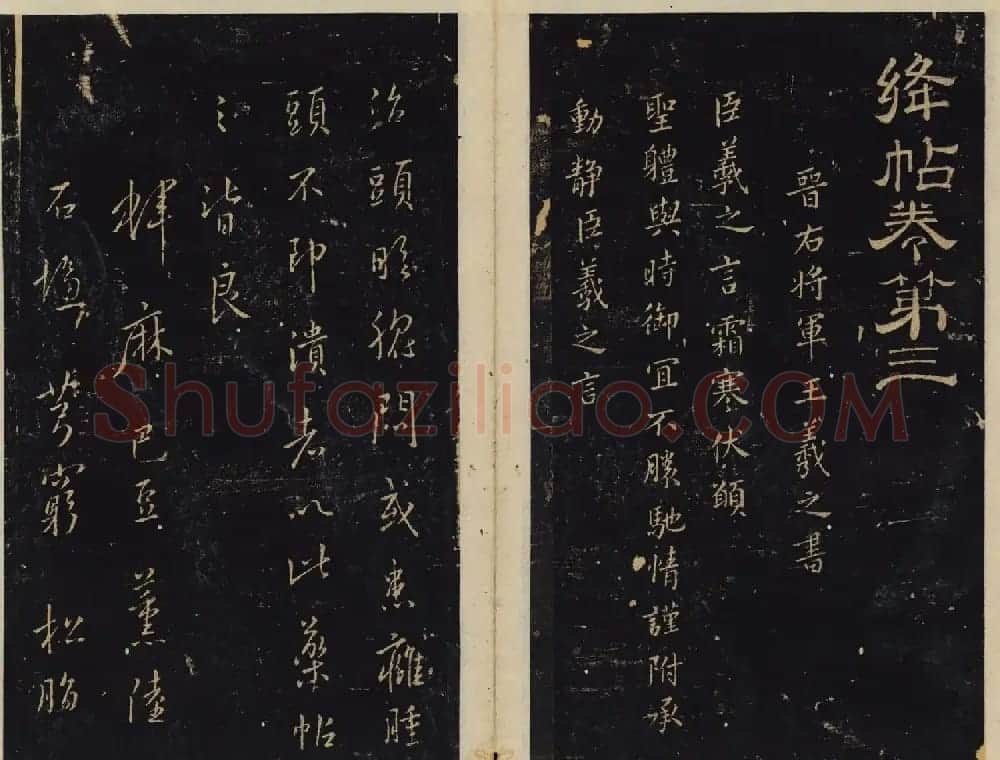 絳帖卷第三
晉右将軍王羲之書
臣羲之言霜寒伏願
聖體與時御宜不勝馳情謹附承
動静臣羲之言
治頭眩悶或患癰腫
頭不即潰者以此藥帖
之皆良
麻 巴豆 薰陸
石鹽 芎窮 松脂
Shufaziliao.COM